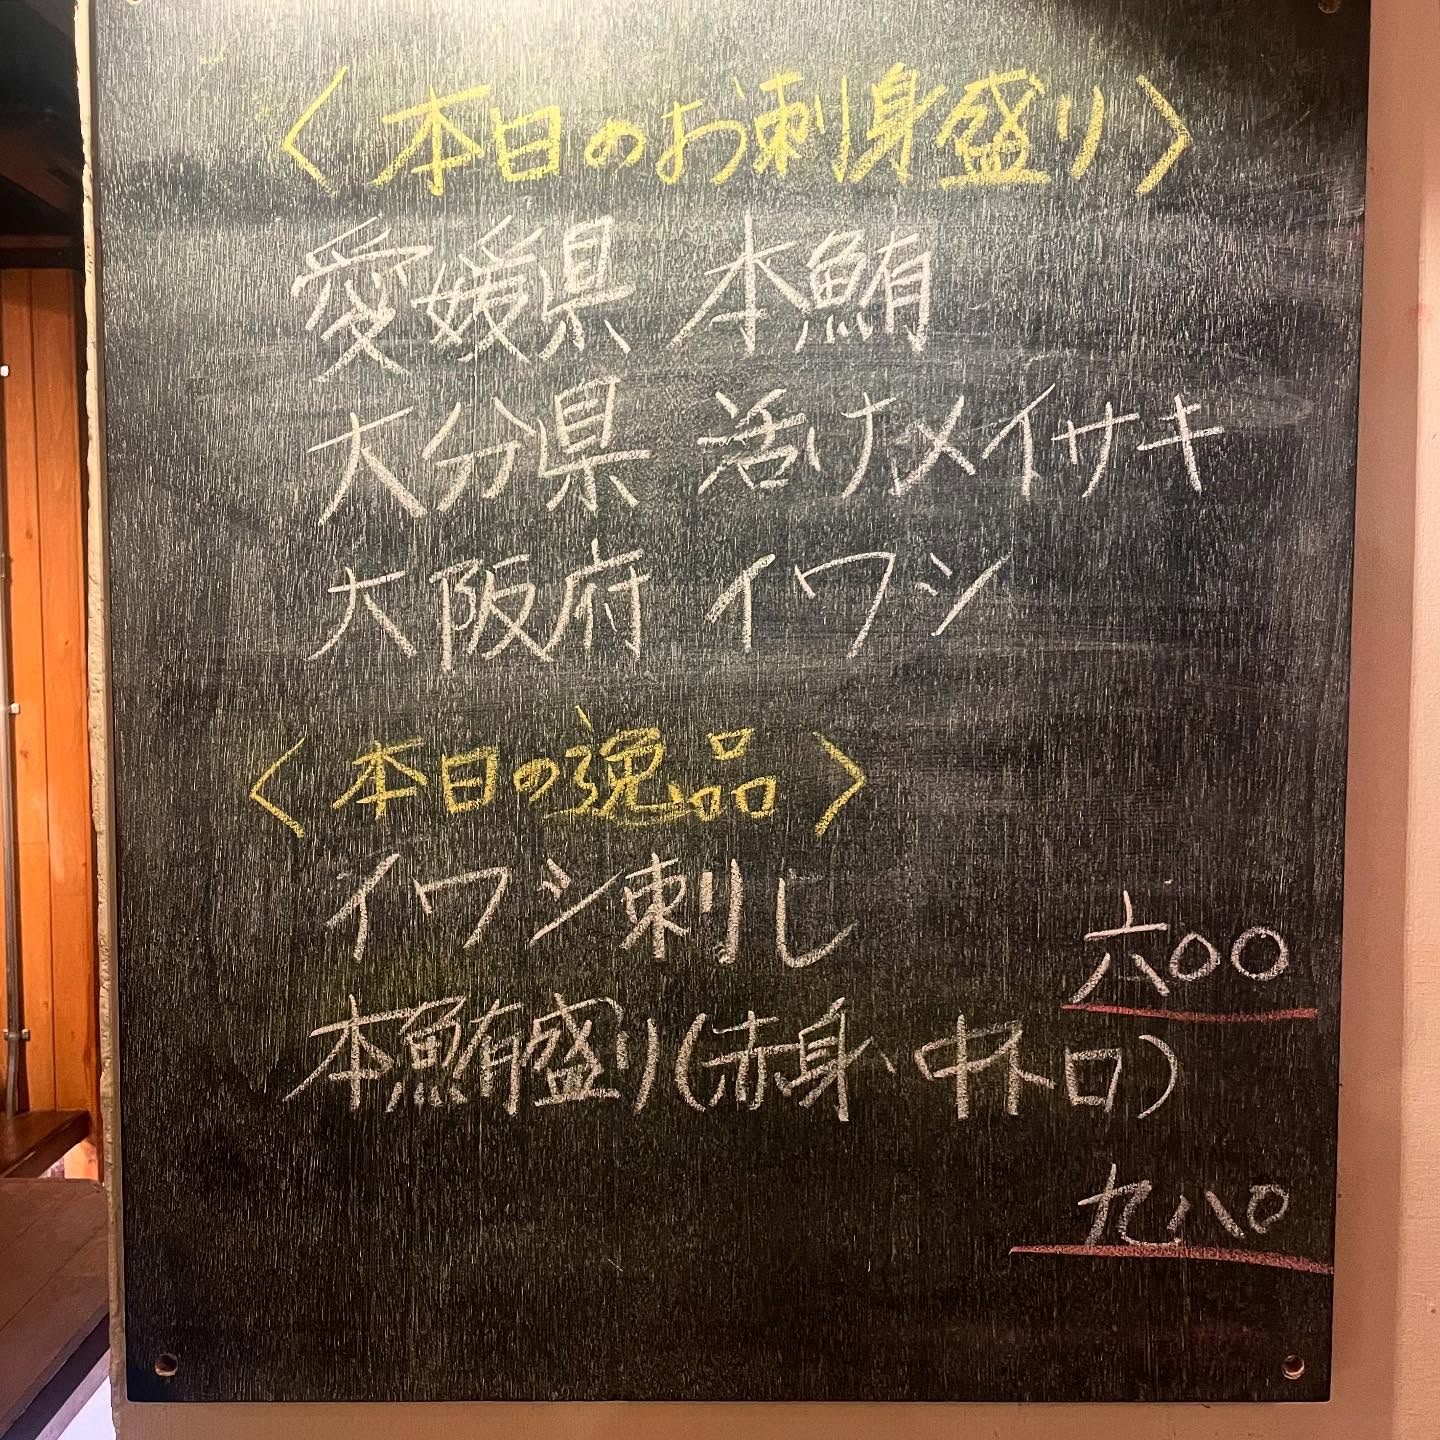 〈本日のお刺身盛り〉
愛媛県 本鮪
大分県 活けメイサキ
大阪府 イワシ
〈本日の逸品〉
イワシ刺し
六〇〇
本鮪盛り(赤身、中トロ)
九八〇